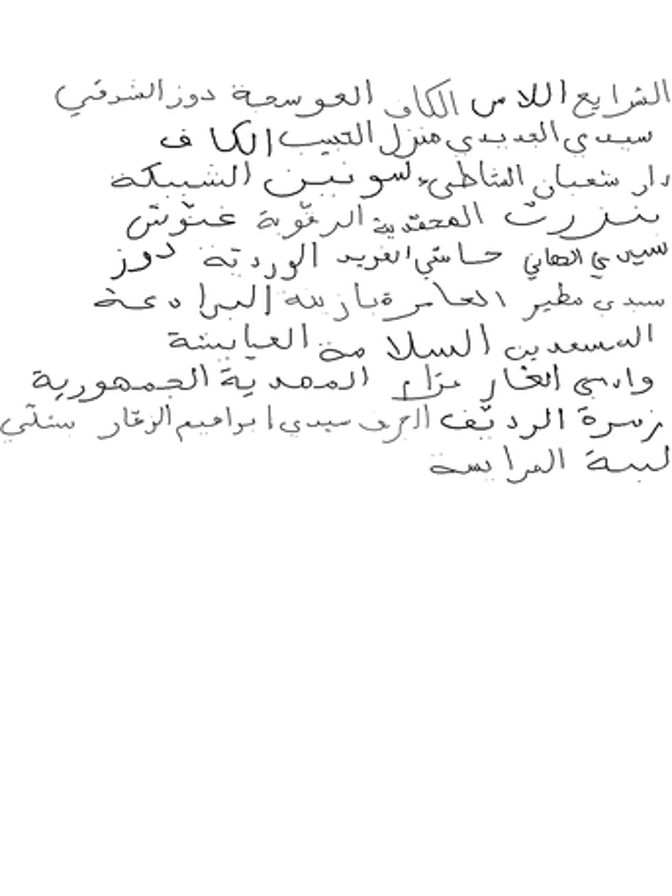 الشرايع اللاس الكاف العوسجة دوز الشرقي
سيدي الجديدي منزل الحبيب الكاف
دار شعبان الشاطئ سونين الشبيكة
بنزرت المحمدية الرقوبة غنوش
سيدي الهاني حاسي الفريد الوردية دوز
سيدي مطير العامرة بازينة البرادعة
السعدين السلامة العبابشة
وادي الغار المهدية الجمهورية
زهرة الرديف الجرف سيدي ابراهيم الزهار ستلي
لببة المرايسة